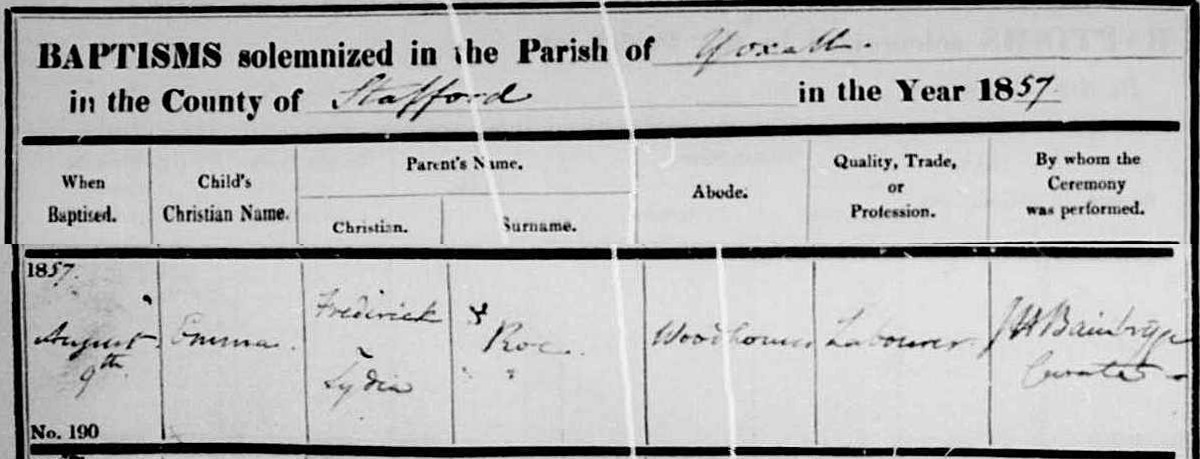 BAPTISMS solemnized in the Parish of Yoxall.
in the County of Stafford in the Year 1857
When Baptised.
Child's Christian Name.
Parent's Name.
Christian.
Surname.
Abode.
Quality, Trade, or Profession.
By whom the Ceremony was performed.
1857.
August 9th
Emma.
Frederick &
Lydia
Roe.
" "
Woodhouses
Labourer
J H Bainbrigge
Curate
No. 190